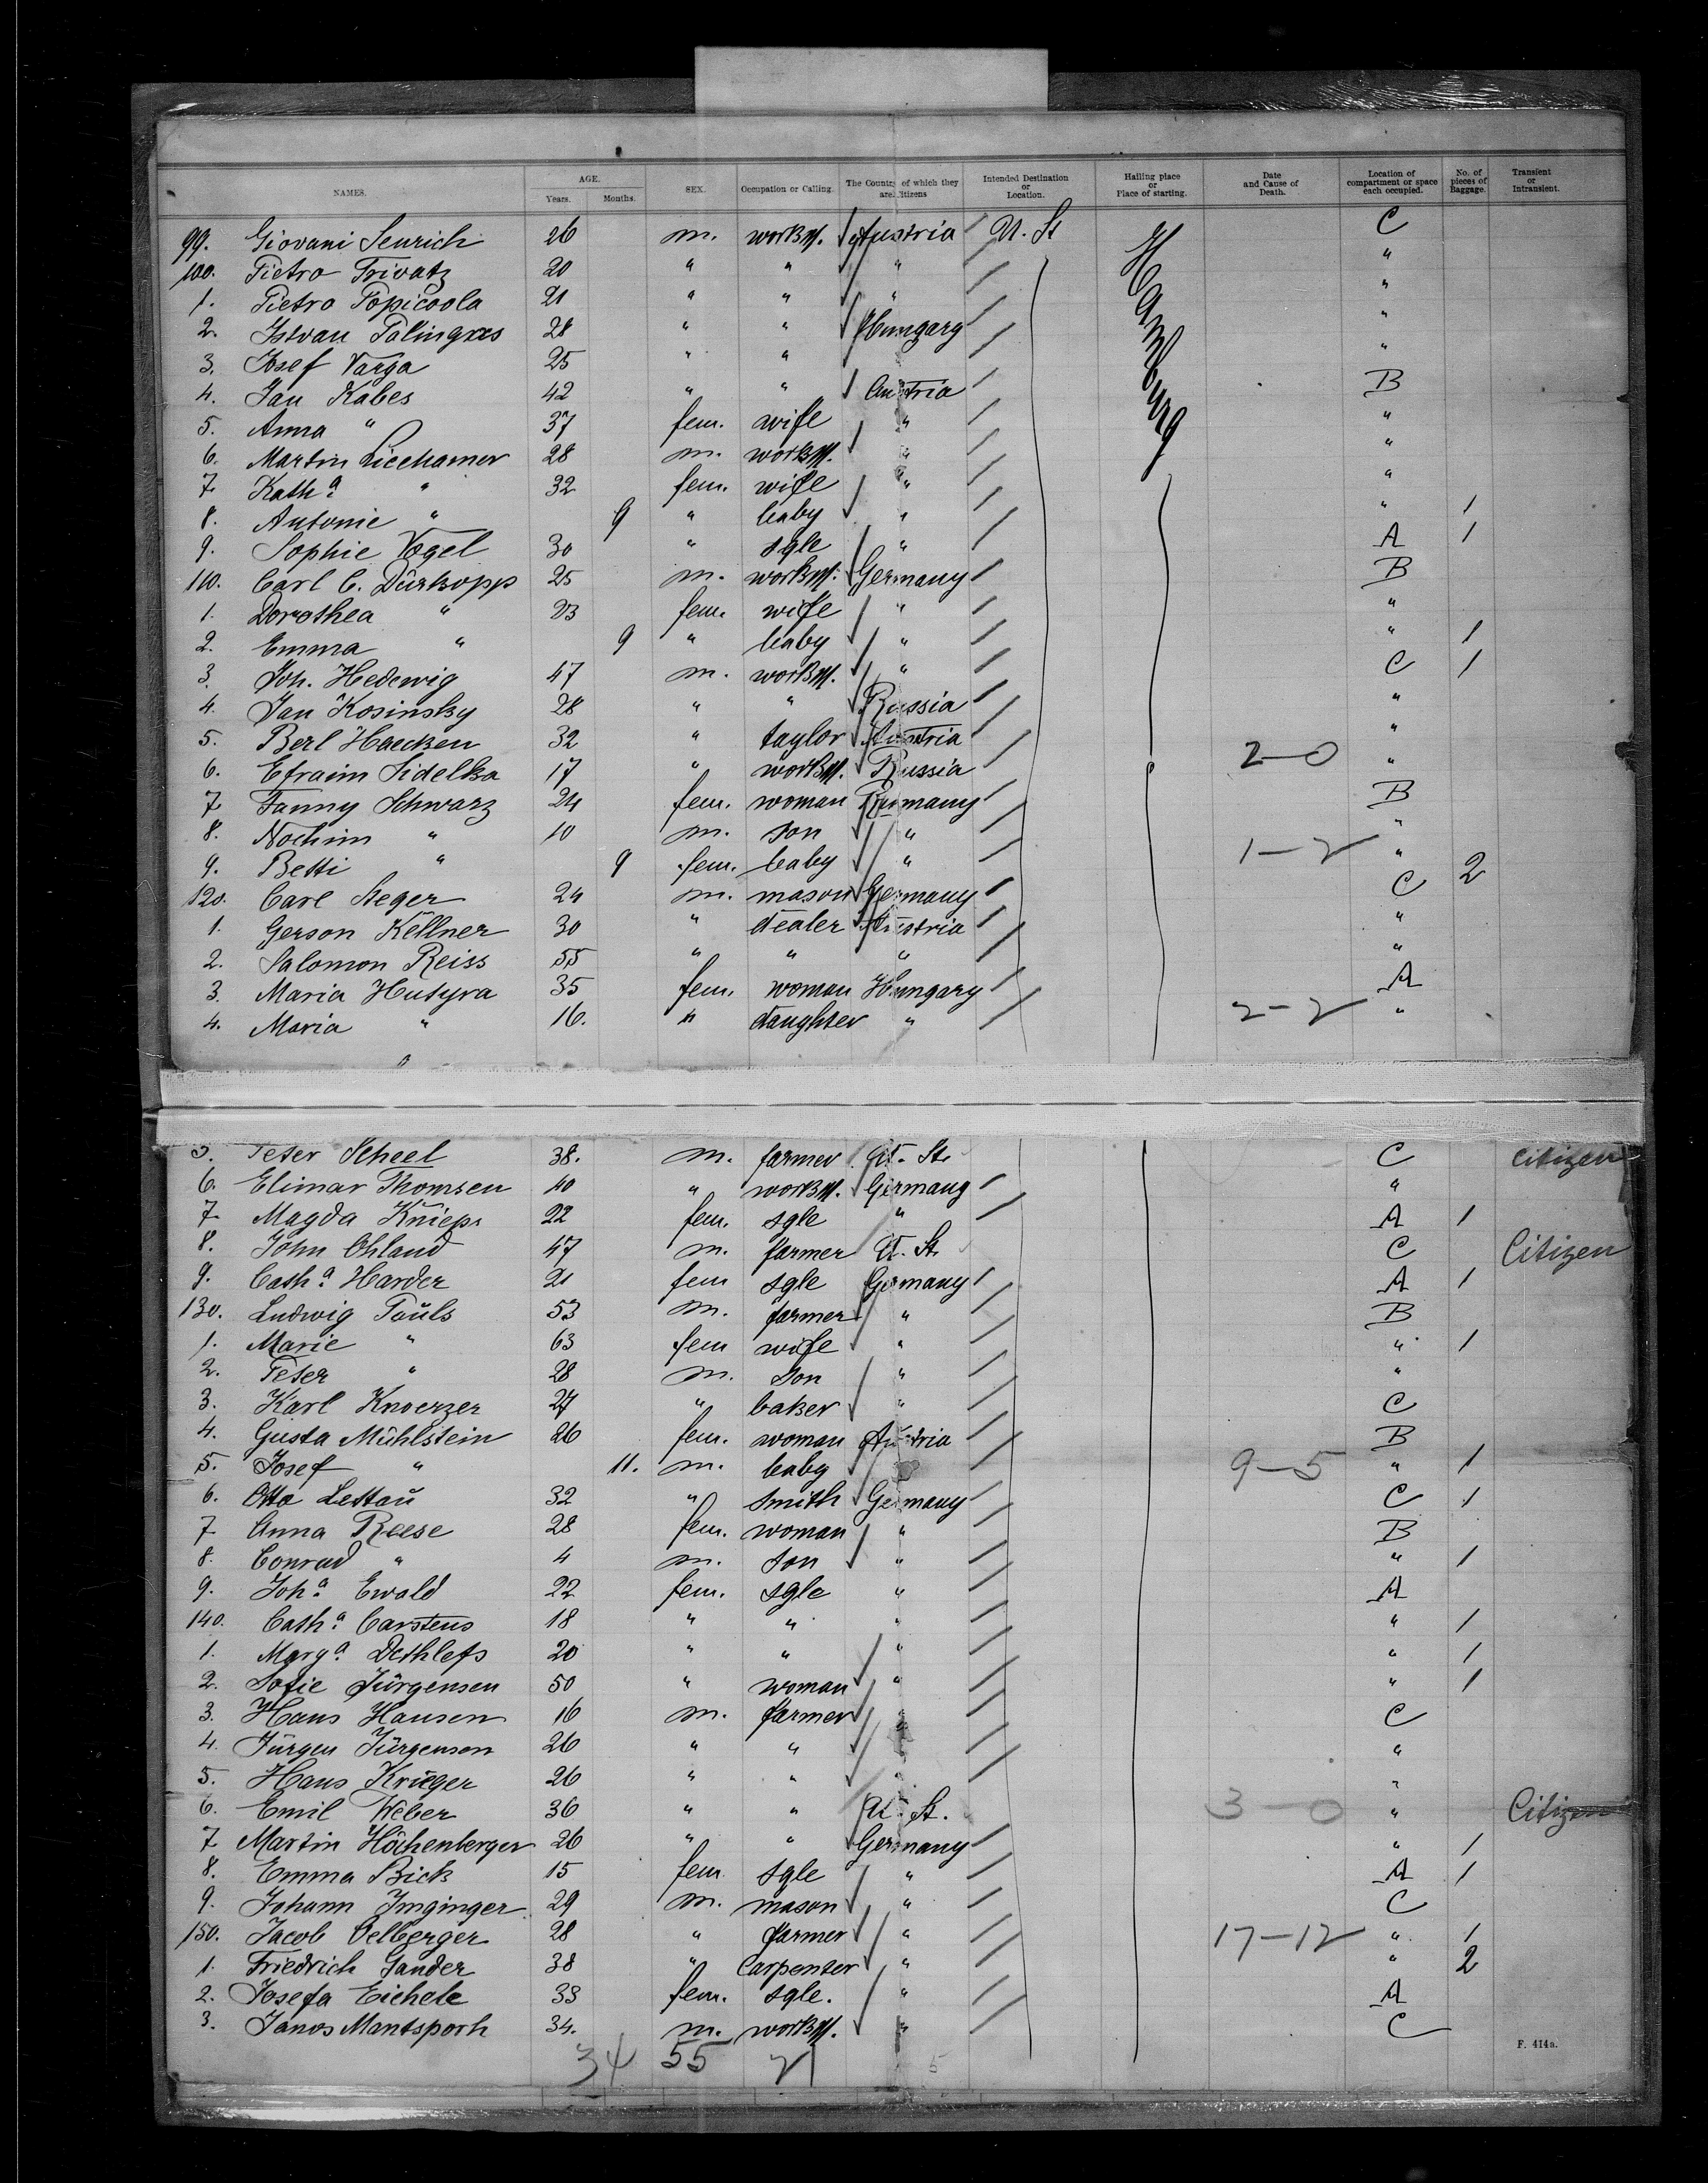 NAMES. AGE. Years. Months. SEX. Occupation or Calling. The Country of which they are Citizens Intended Destination or Location. Hailing place or Place of starting. Date and Cause of Death. Location of compartment or space each occupied. No. of pieces of Baggage. Transient or Intransient.
99. Giovani Seurich 26 m. workm. Austria U. St Hamburg C
100. Pietro Trivatz 20 " " " "
1. Pietro Popicoola 21 " " " "
2. Istvan Palingras 28 " " Hungary "
3. Josef Varga 25 " " "
4. Jan Kabes 42 " " Austria B
5. Anna " 37 fem. wife " "
6. Martin 28 m. workm. " "
7. Kath.a " 32 fem. wife " "
8. Antonie " 9 " baby " " 1
9. Sophie Vogel 30 " sgle " A 1
110. Carl C. Dürkopp 25 m. workm. Germany B
1. Dorothea " 23 fem. wife " "
2. Emma " 9 " baby " " 1
3. Joh. Hedewig 47 m. workm. " C 1
4. Jan Kosinsky 28 " " Russia "
5. Berl Haecken 32 " taylor Austria "
6. Efraim Sidelka 17 " workm. Russia 2-0 "
7. Fanny Schwarz 24 fem. woman Rumany B
8. Nochim " 10 m. son " "
9. Betti " 9 fem. baby " 1-2 " 2
120. Carl Steger 24 m. mason Germany C
1. Gerson Kellner 30 " dealer Austria "
2. Salomon Reiss 55 " " " "
3. Maria Hutyra 35 fem. woman Hungary A
4. Maria " 16. " daughter " 2-2 "
5. Peter Scheel 38. m. farmer U. St. C citizen
6. Elimar Thomsen 40 " workm. Germany "
7. Magda Knieps 22 fem. sgle " A 1
8. John Ohland 47 m. farmer U. St. C Citizen
9. Cath.a Harder 21 fem sgle Germany A 1
130. Ludwig Pauls 53 m. farmer " B
1. Marie " 63 fem wife " " 1
2. Peter " 28 m. son " "
3. Karl Knoerzer 27 " baker " C
4. Gusta Mühlstein 26 fem. woman Austria B
5. Josef " 11. m. baby 9-5 " 1
6. Otto Lettau 32 " smith Germany C 1
7. Anna Reese 28 fem. woman " B
8. Conrad " 4 m. son " " 1
9. Joh.a Ewald 22 fem. sgle " A
140. Cath.a Carstens 18 " " " " 1
1. Marg.a Dethlefs 20 " " " " 1
2. Sofie Jürgensen 50 " woman " " 1
3. Hans Hansen 16 m. farmer " C
4. Jürgen Jürgenson 26 " " " "
5. Hans Krüger 26 " " " "
6. Emil Weber 36 " " U. St. 3-0 " Citizen
7. Martin Höchenberger 26 " " Germany " 1
8. Emma Bick 15 fem. sgle " A 1
9. Johann Imginger 29 m. mason " C
150. Jacob Oelberger 28 " farmer " 17-12 " 1
1. Friedrich Gander 38 " Carpenter " " 2
2. Josefa Eichele 33 fem. sgle. " A
3. Janos Mantsporh 34. m. workm. " C
34 55 21 5
F. 414a.